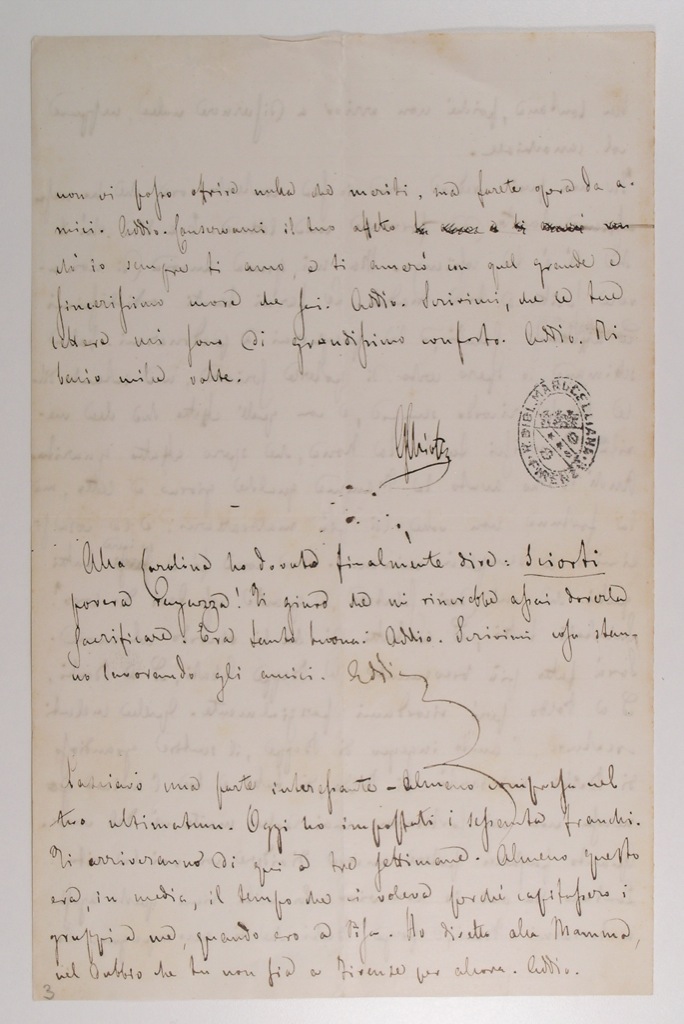 non vi posso offrire nulla che meriti, ma farete opera da a-
mici. Addio. Conservami il tuo affetto
ch'io sempre ti amo, e ti amerò con quel grande e
sincerissimo che sai. Addio. Scrivimi, che le tue
lettere mi sono di grandissimo conforto. Addio. Ti
bacio mille volte.
R. BIBL. MARUCELLIANA
FIRENZE
Alla Carolina ho dovuto finalmente dire: Sciorti
povera ragazza! Ti giuro che mi rincrebbe assai doverla
sacrificare. Era tanto buona. Addio. Scrivimi cosa stan-
no lavorando gli amici. Addio
Lasciavo una parte interessante - almeno compresa nel
tuo ultimatum. Oggi ho impostati i sessanta franchi.
Ti arriveranno di qui a tre settimane. Almeno questo
era, in media, il tempo che ci voleva perché capitassero i
gruppi a me, quando ero a Pisa. Ho diretto alla Mamma,
nel dubbio che tu non sia a Firenze per allora. Addio.
3